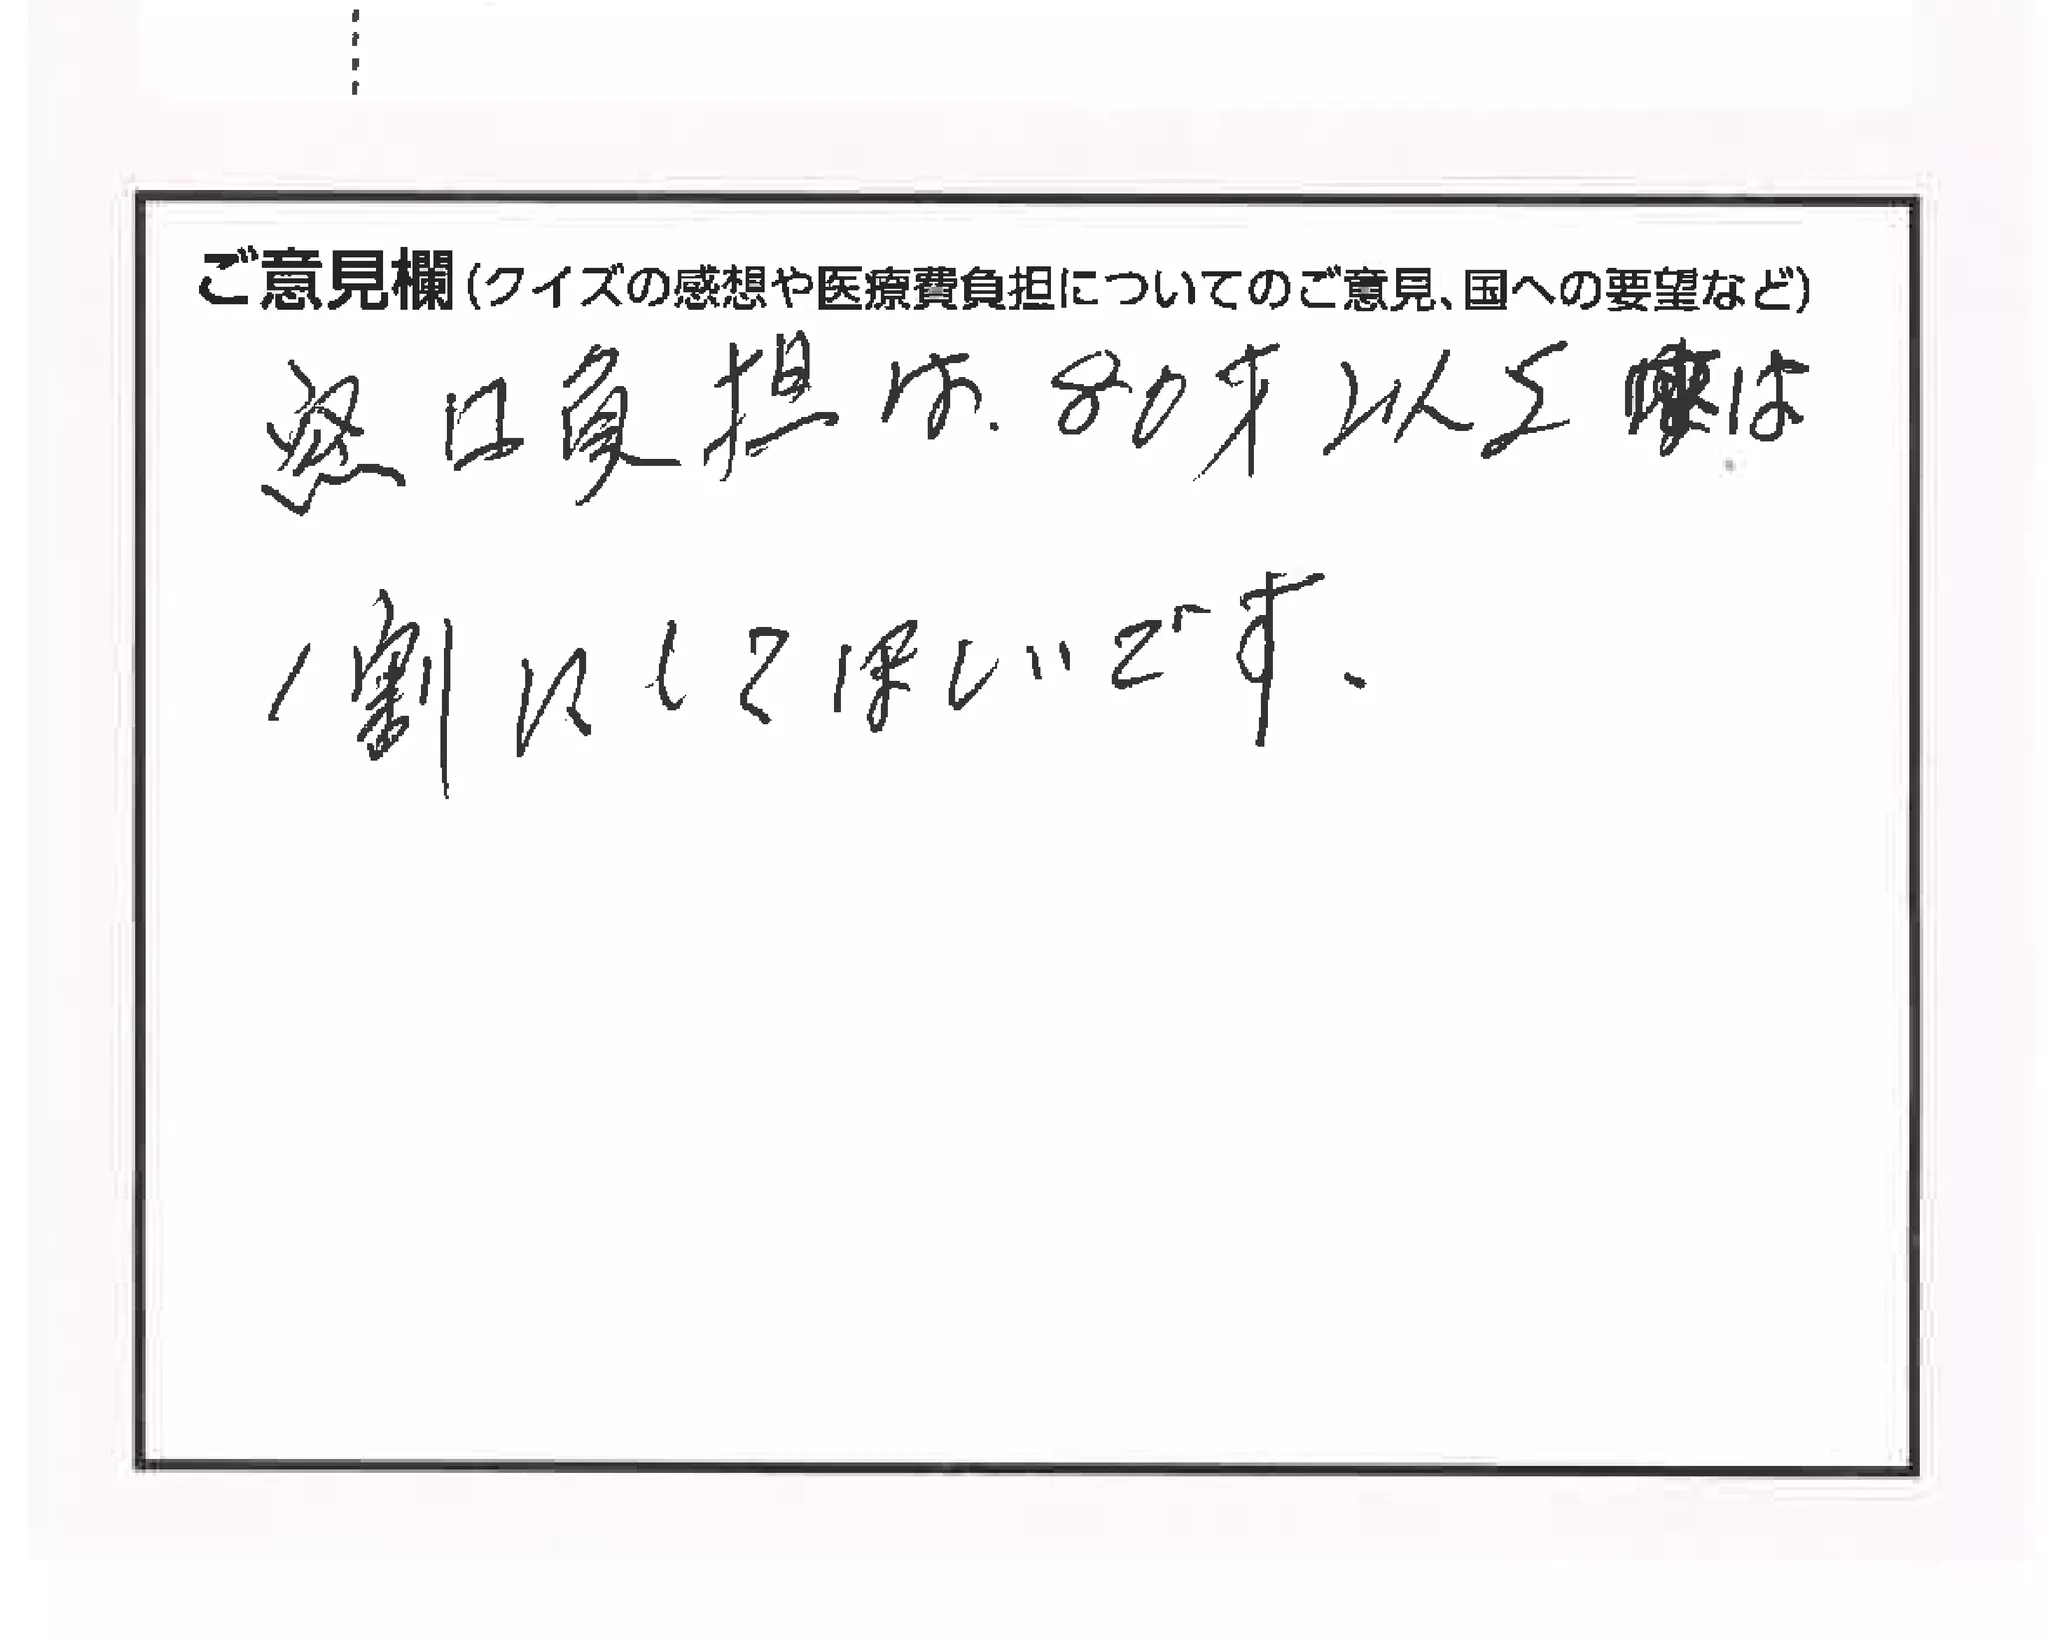 ご意見欄(クイズの感想や医療費負担についてのご意見、国への要望など)
窓口負担は、80才以上は
1割にしてほしいです、